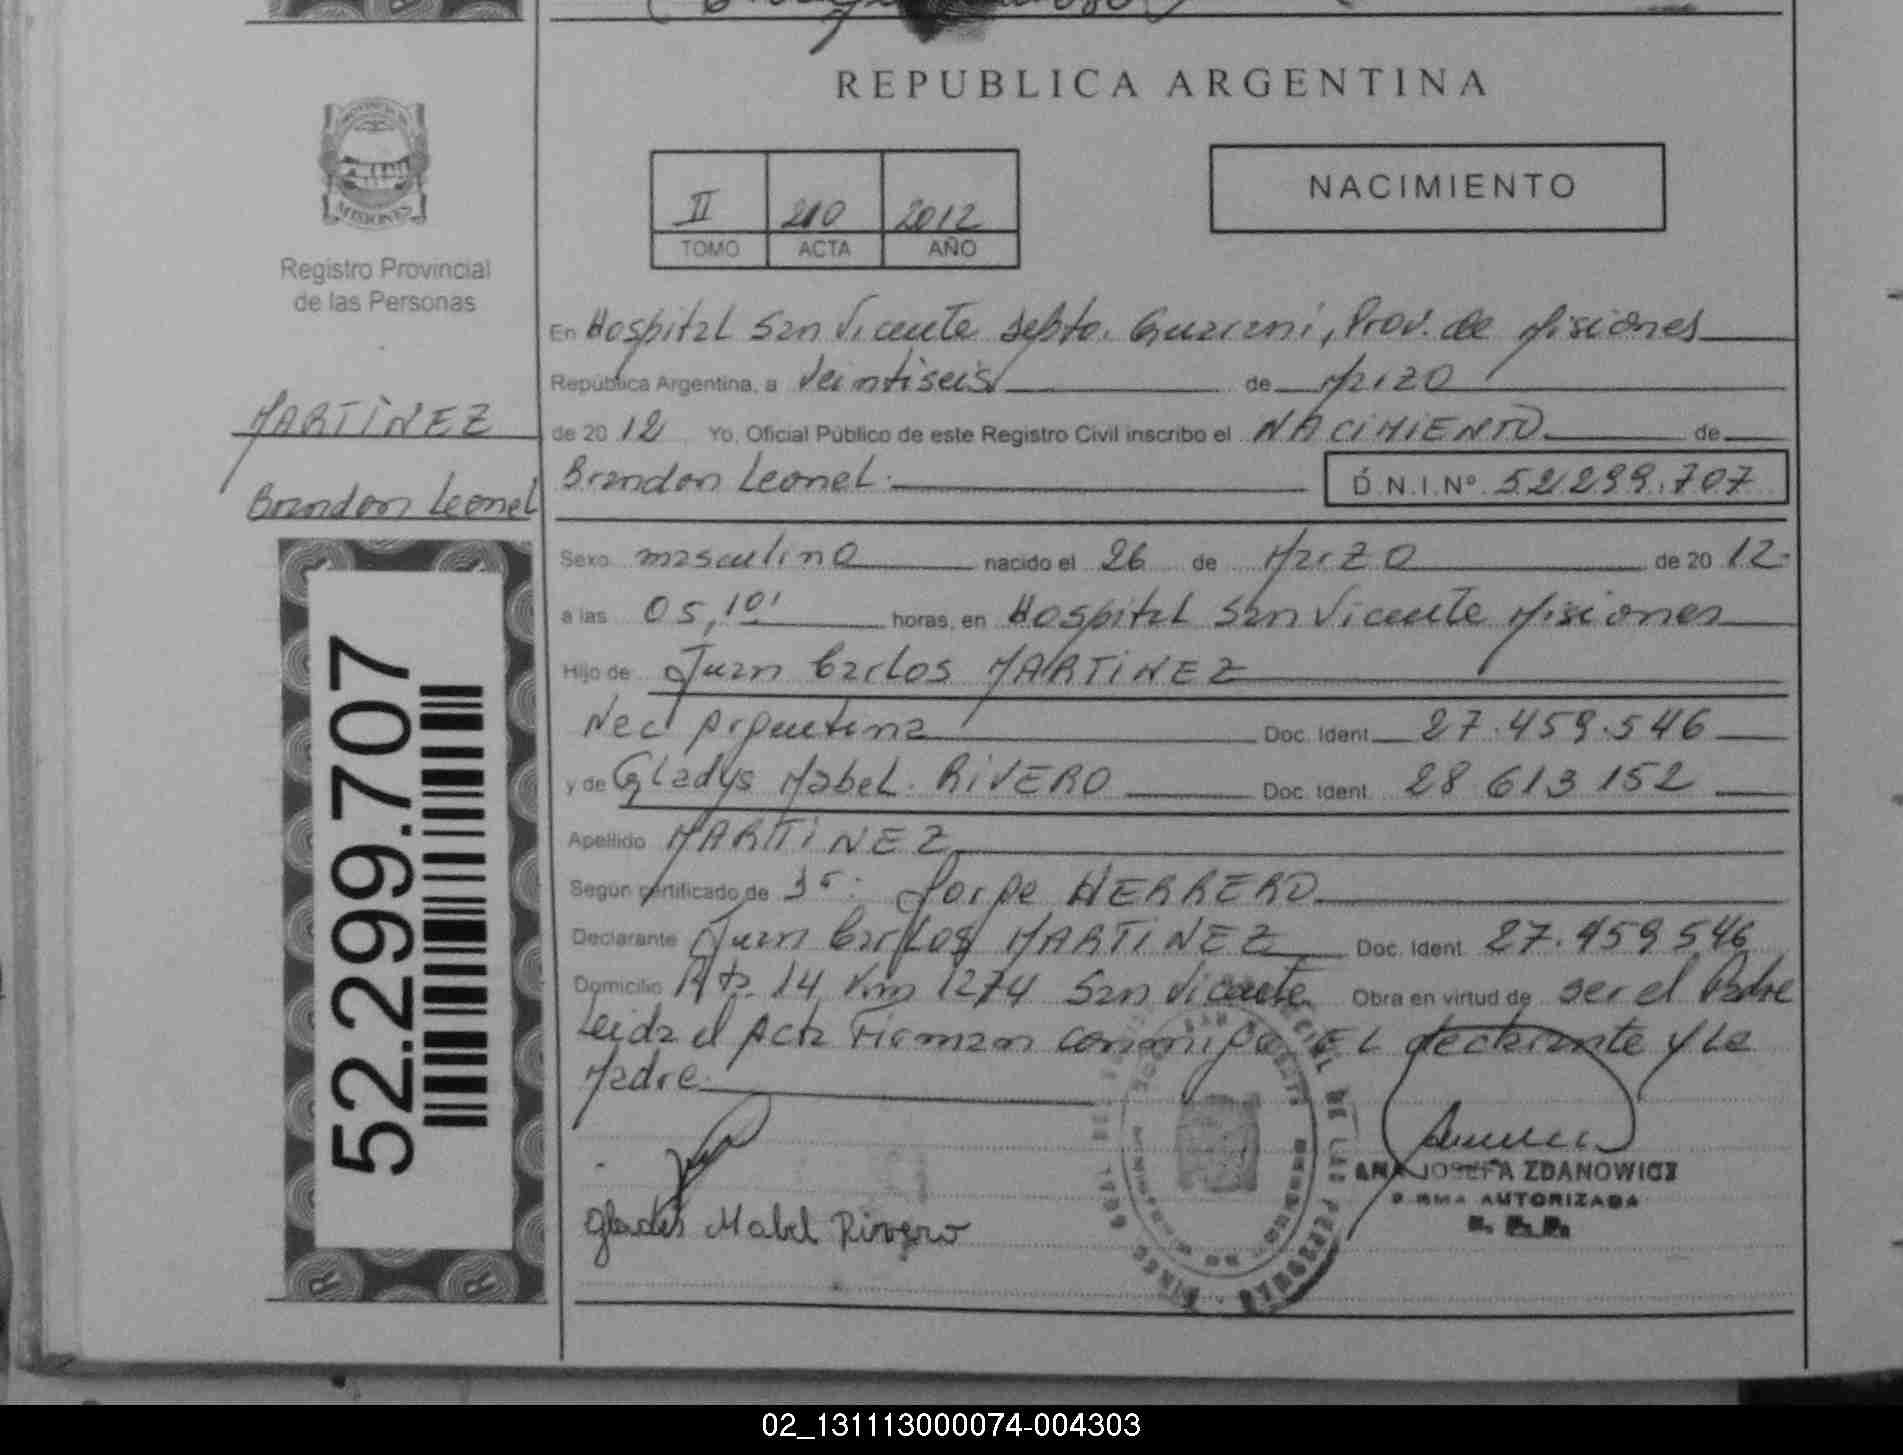 REPUBLICA ARGENTINA
PROVINCIA DE
MISIONES
Registro Provincial
de las Personas
II 210 2012
TOMO ACTA AÑO
NACIMIENTO
En Hospital San Vicente Depto. Guarani, Prov. de Misiones
República Argentina, a Veintiseis de Marzo
MARTINEZ
de 20 12 Yo, Oficial Público de este Registro Civil inscribo el NACIMIENTO de
Brandon Leonel
Brandon Leonel. D.N.I.Nº 52.299.707
Sexo masculino nacido el 26 de Marzo de 20 12
a las 05,10' horas, en Hospital San Vicente Misiones
Hijo de Juan Carlos MARTINEZ
Nac Argentina Doc. Ident. 27.459.546
y de Gladys Mabel. RIVERO Doc. Ident. 28 613 152
Apellido MARTINEZ
Según certificado de Jorge HERRERO
Declarante Juan Carlos MARTINEZ Doc. Ident. 27.459 546
Domicilio Rta. 14 Km 1274 San Vicente Obra en virtud de ser el Padre
Leida el Acta Firman conmigo EL declarante y La
Madre.
52.299.707
ANA JOSEFA ZDANOWICZ
FIRMA AUTORIZADA
Gladis Mabel Rivero
02_131113000074-004303